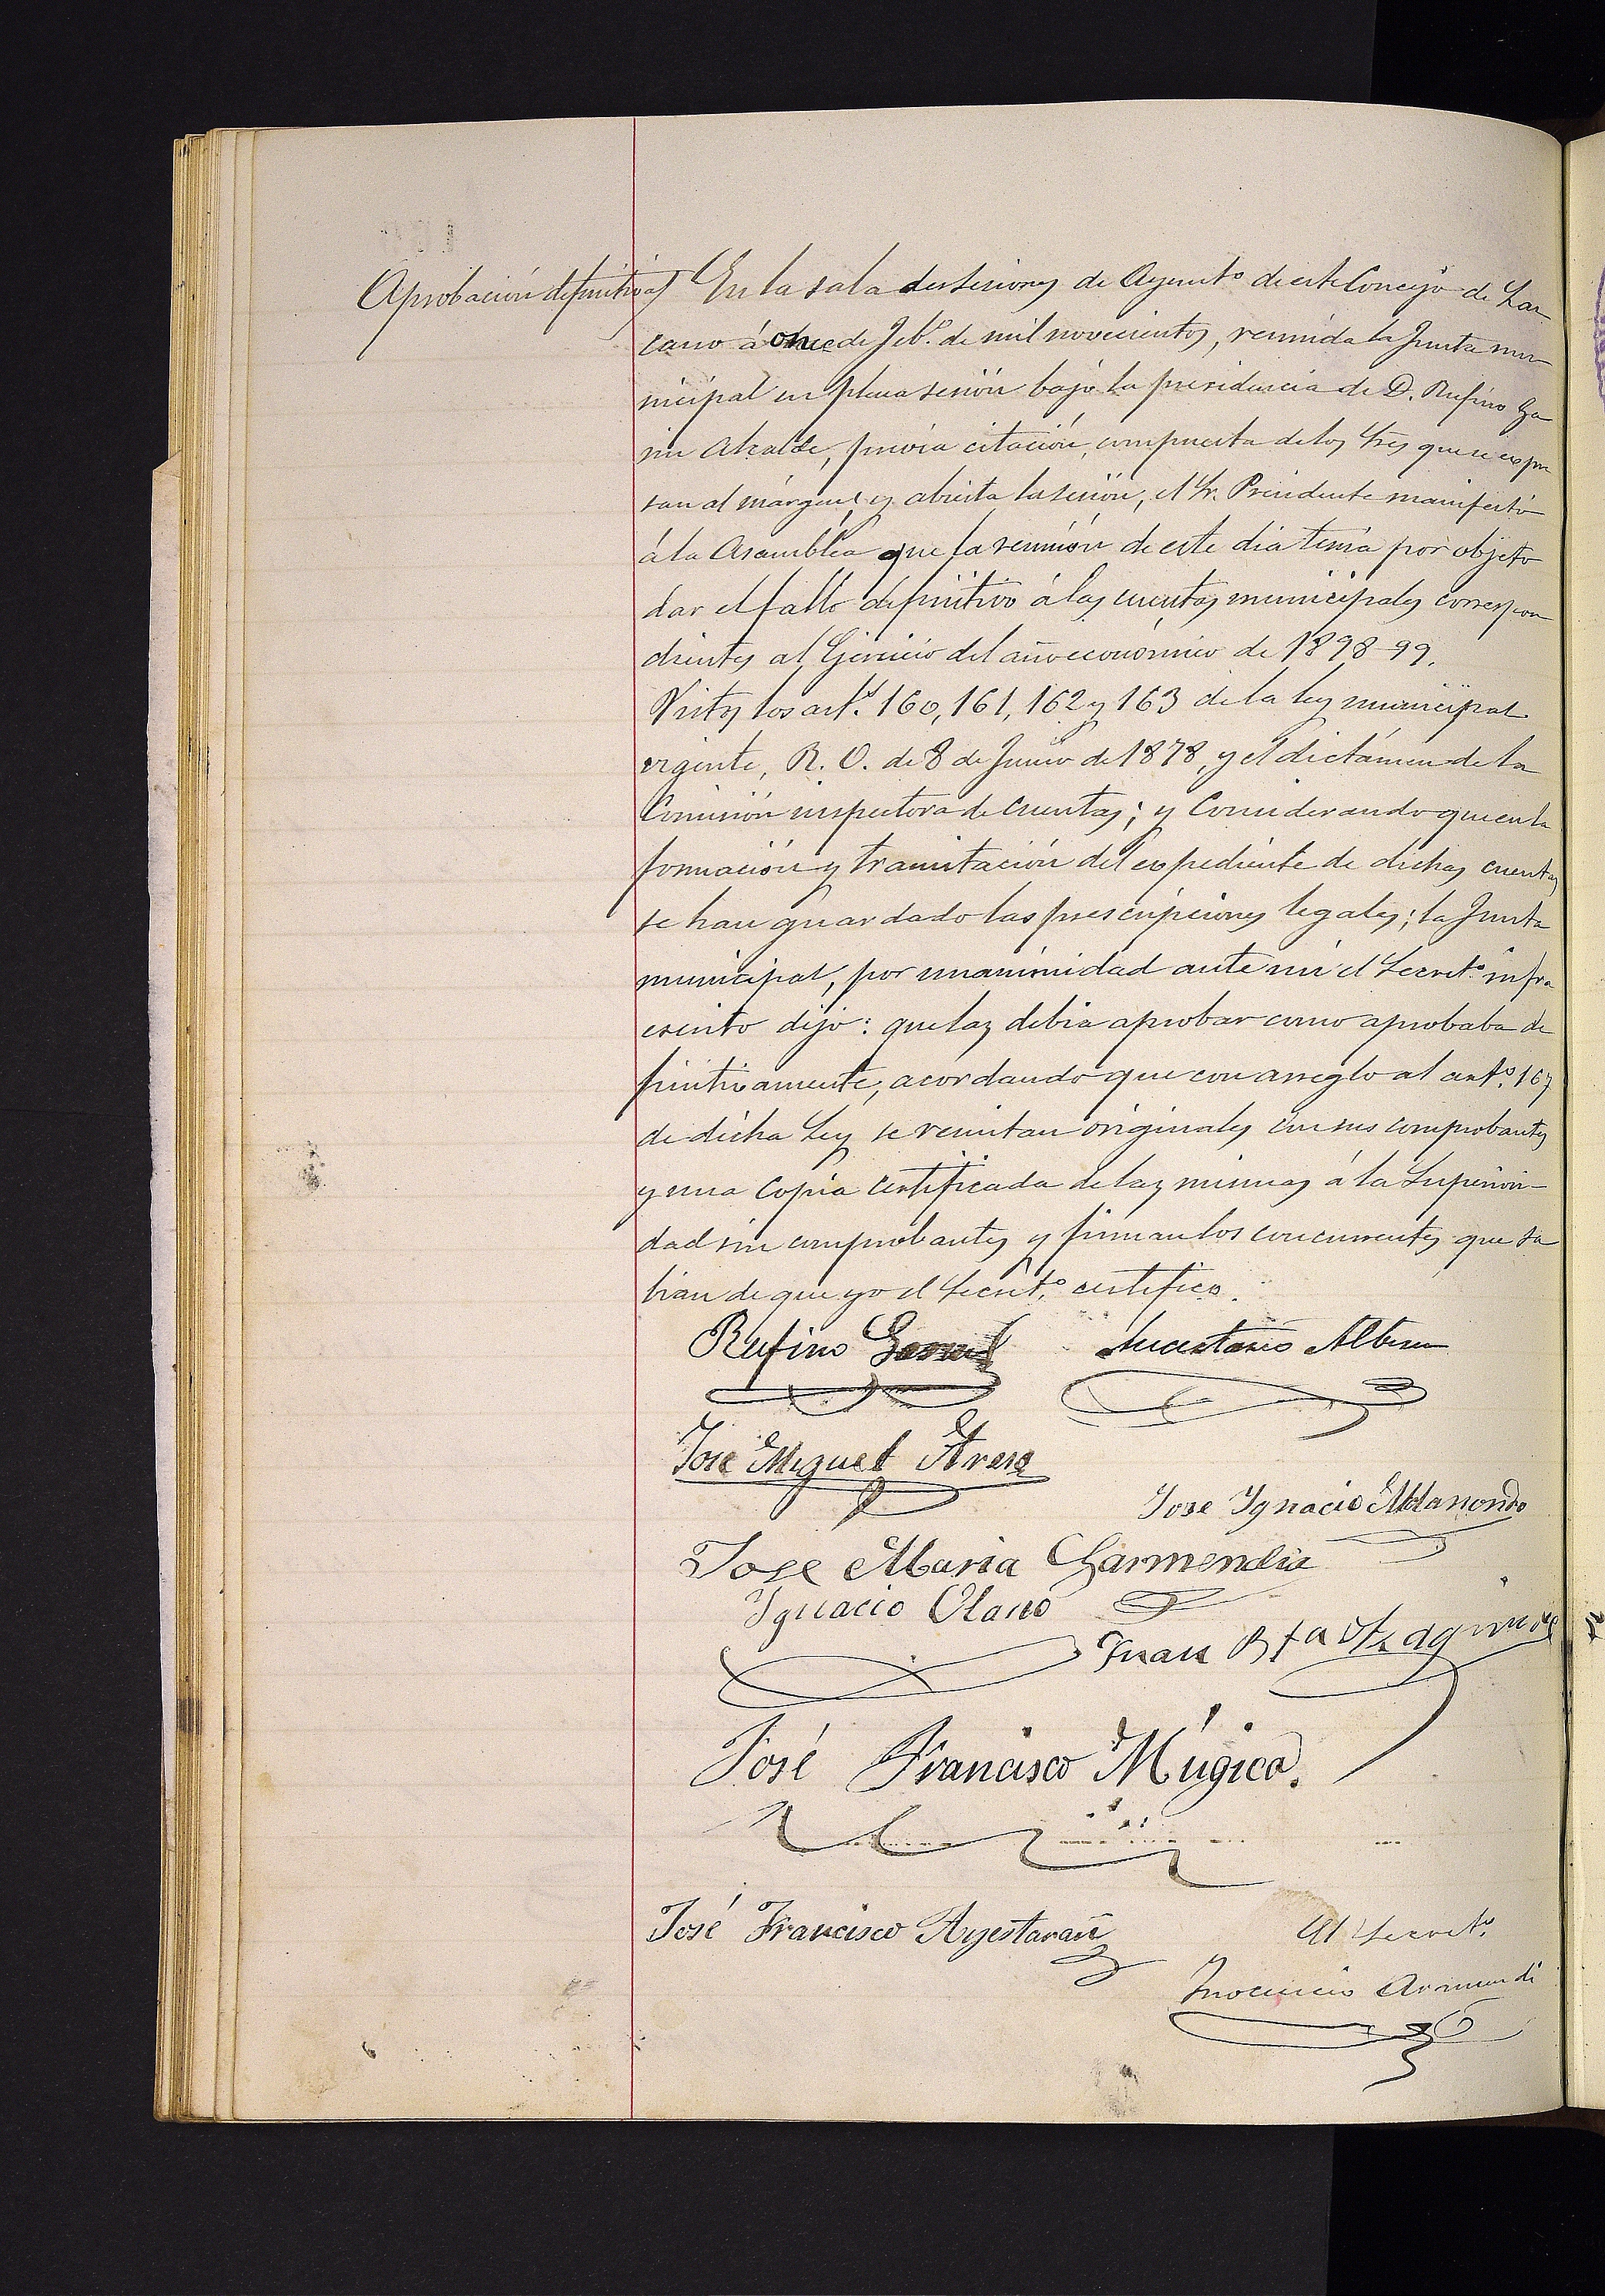 Aprobación definitiva
En la sala de sesiones de Ayunt.º de este Concejo de Laz
cano á once de Feb.º de mil novecientos, reunida la Junta mu
nicipal en plena sesión bajo la presidencia de D. Rufino Ga
Alcalde, previa citación, compuesta de los Sres que se expre
san al márgen, y abierta la sesión, el Sr. Presidente manifestó
á la Asamblea que la reunión de este dia tenía por objeto
dar el fallo definitivo á las cuentas municipales correspon
dientes al Ejercicio del año económico de 1898-99.
Vistos los art.s 160, 161, 162 y 163 de la ley municipal
vigente, R. O. de 8 de Junio de 1878, y el dictámen de la
Comisión inspectora de cuentas; y Considerando que en la
formación y tramitación del expediente de dichas cuentas
se han guardado las prescripciones legales; la Junta
municipal, por unanimidad ante mi el Secret.º infra
escrito dijo: que las debia aprobar como aprobaba de
finitivamente, acordando que con arreglo al art.º 167
de dicha Ley se remitan originales con sus comprobantes
y una copia certificada de las mismas á la Superiori-
dad sin comprobantes y firman los concurrentes que sa
bian de que yo el Secret.º certifico.
Rufino Albisu
José Miguel
Jose Ygnacio Aldanondo
Jose Maria Garmendia
Ygnacio Olano
Juan Bta
José Francisco Múgica.
José Francisco Ayestarañ
El Secret.º
Ynocencio Armendi